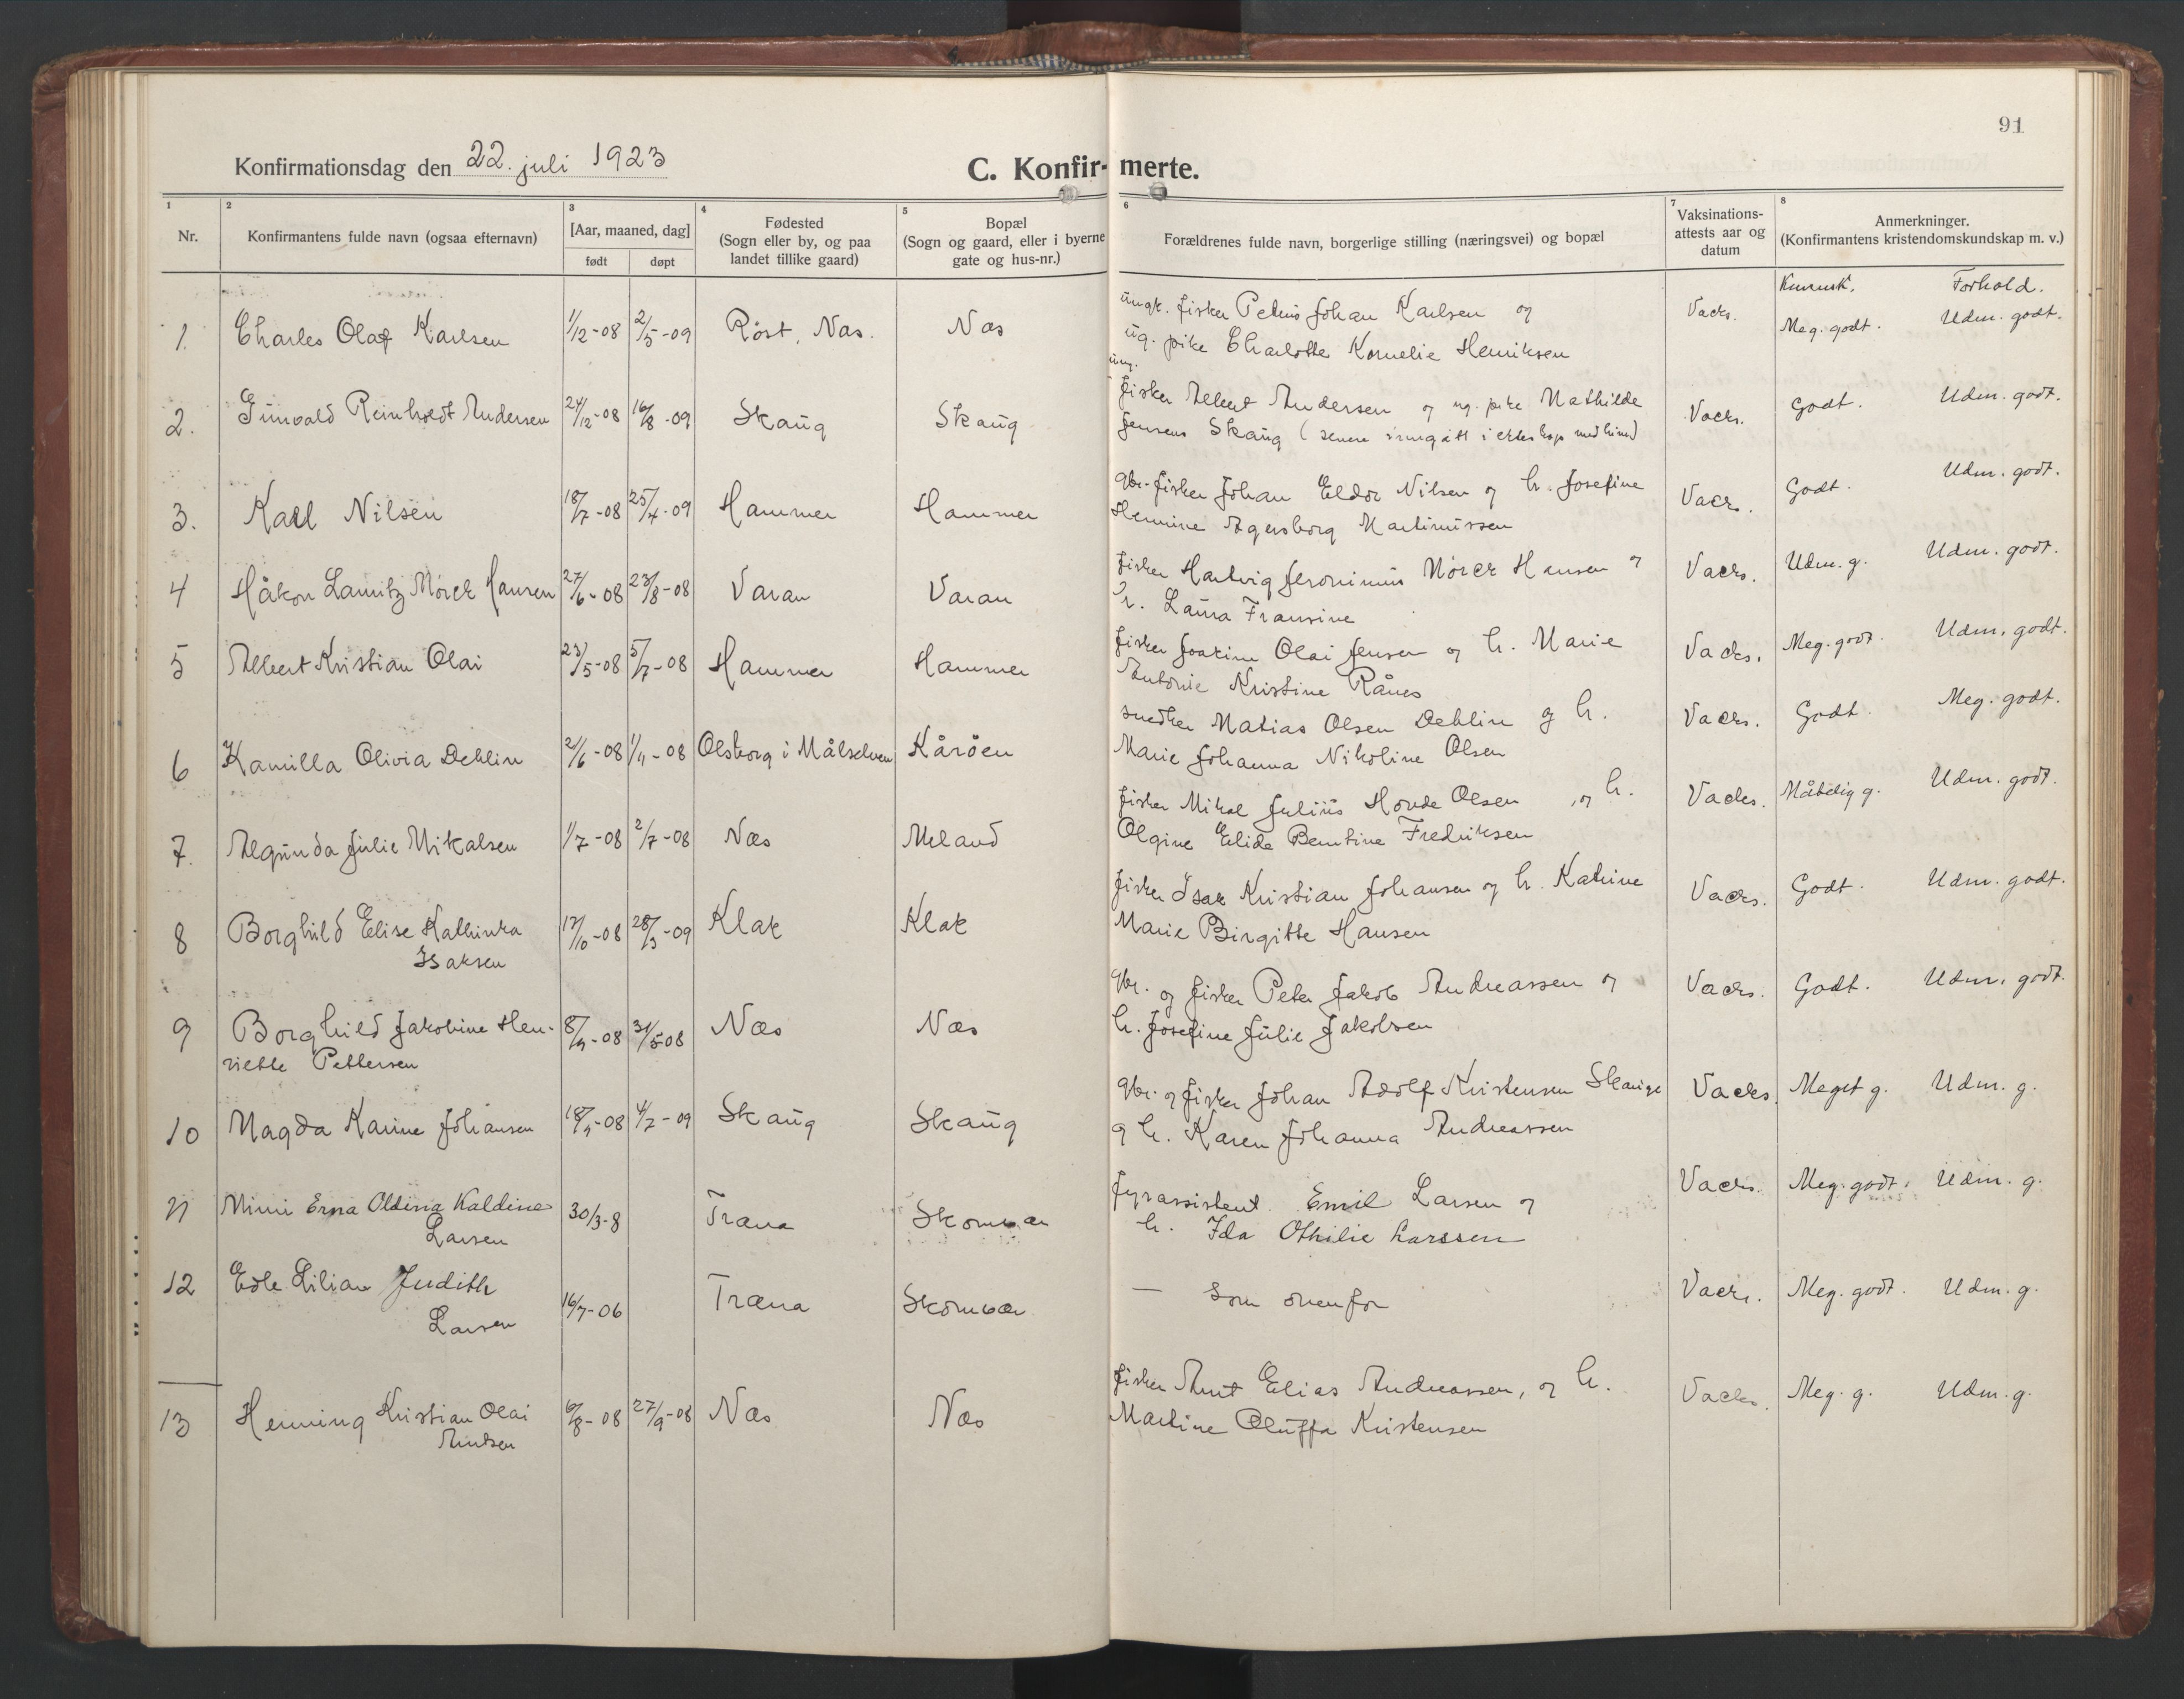 91
Konfirmationsdag den 22. juli 1923
C. Konfir- merte.
1 2 3 4 5 6 7 8
Nr.
Konfirmantens fulde navn (ogsaa efternavn)
[Aar, maaned, dag]
født døpt
Fødested
(Sogn eller by, og paa
landet tillike gaard)
Bopæl
(Sogn og gaard, eller i byerne
gate og hus-nr.)
Forældrenes fulde navn, borgerlige stilling (næringsvei) og bopæl
Vaksinations-
attests aar og
datum
Anmerkninger.
(Konfirmantens kristendomskundskap m. v.)
Kunnsk. Forhold.
1. Charles Olaf Karlsen 1/12-08 2/5-09 Röst, Nas. Næs ungk. fisker Petrus Johan Karlsen og Vacks. Meg. godt. Udm. godt.
ug. pike Charlotte Kornelie Henriksen
ung.
2. Gunvald Reinholdt Andersen 24/12-08 16/8-09 Skaug Skaug fisker Albert Andersen og ug. pike Mathilde Vacks. Godt. Udm. godt.
Jensen Skaug (senere inngått i ekteskap med hinnd)
3. Karl Nilsen 18/7-08 25/4-09 Hammer Hammer gbr-fisker Johan Eldor Nilsen og h. Josefine Vacs. Godt. Udm. godt.
Hermine Agersborg Martinussen
4 Håkon Lauritz Mörck Hansen 27/6-08 23/8-08 Varan Varan fisker Hartvig Jeronimus Mörck Hansen og Vacks. Udm. g. Udm. godt.
h. Laura Fransine
5 Albert Kristian Olai 23/5-08 5/7-08 Hammer Hammer fisker Joakim Olai Jensen og h. Marie Vacks. Meg. godt. Udm. godt.
Antonie Kristine Rånes
6 Kamilla Olivia Dehlin 2/6-08 1/11-08 Olsborg i Målselven Kåröen snedker Matias Olsen Dehlin og h. Vacks. Godt. Meg. godt.
Marie Johanna Nikoline Olsen
7. Algunda Julie Mikalsen 1/7-08 2/7-08 Næs Meland fisker Mikal Julius Hovde Olsen, og h. Vacks. Måtelig g. Udm. godt.
Olgine Elida Berntine Fredriksen
8 Borghild Elise Kathinka 17/10-08 28/3-09 Klak Klak fisker Isak Kristian Johansen og h. Katrine Vacks. Godt. Udm. godt.
Isaksen Marie Birgitte Hansen
9 Borghild Jakobine Hen- 8/4-08 31/5-08 Næs Næs gbr. og fisker Peter Jakob Andreassen og Vacks. Godt. Udm. godt.
riette Pettersen h. Josefine Julie Jakobsen
10 Magda Karine Johansen 18/9-08 4/7-09 Skaug Skaug gbr. og fisker Johan Adolf Kristensen Skauge Vacks. Meget g. Udm. g.
og h. Karen Johanna Andreassen
11 Mimi Erna Oldina Kaldine 30/3-8 Træna Skomvær fyrassistent Emil Larsen og Vacks. Meg. godt. Udm. g.
Larsen h. Ida Othilie Larssen
12 Edle Lilian Judith 16/7-06 Træna Skomvær — Som ovenfor Vacks. Meg. godt. Udm. g.
Larsen
13 Henning Kristian Olai 6/8-08 27/9-08 Næs Næs fisker Arnt Elias Andreassen, og h. Vacks. Meg. g. Udm. g.
Arntsen Martine Oluffa Kristensen